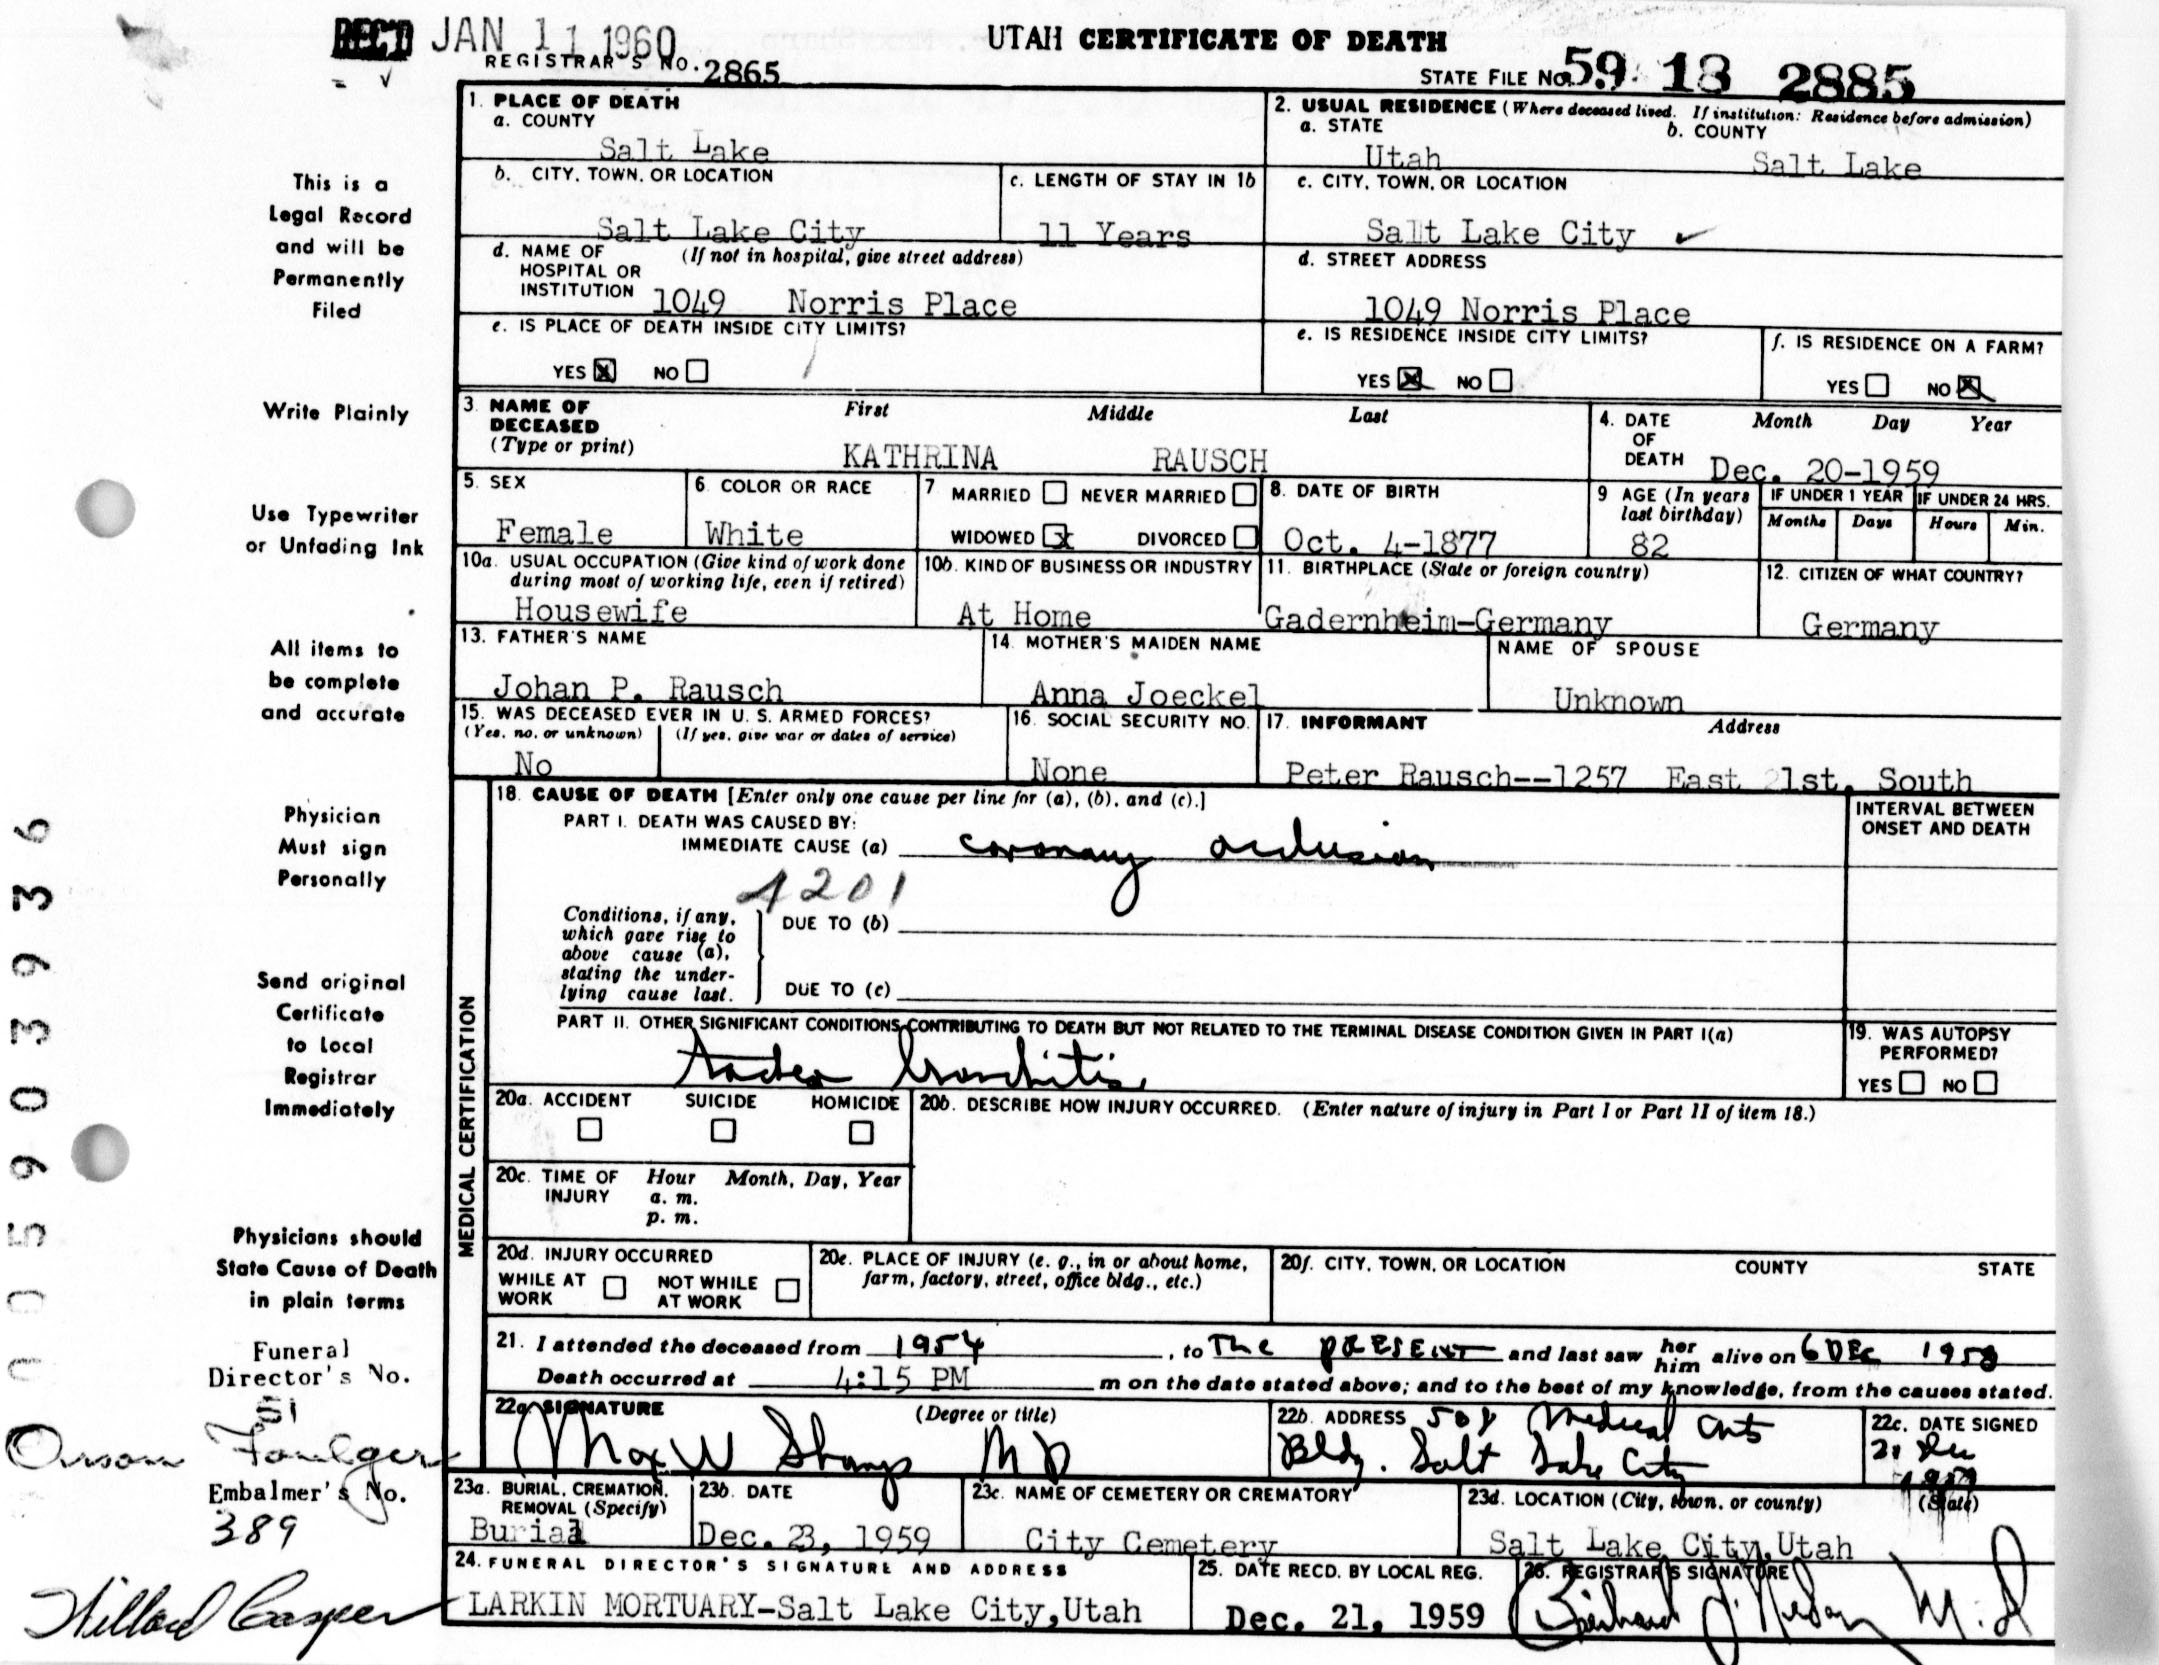 REC'D JAN 11 1960
UTAH CERTIFICATE OF DEATH
REGISTRAR'S NO. 2865
STATE FILE No. 59 18 2885
1. PLACE OF DEATH
a. COUNTY
Salt Lake
2. USUAL RESIDENCE (Where deceased lived. If institution: Residence before admission)
a. STATE b. COUNTY
Utah Salt Lake
b. CITY, TOWN, OR LOCATION
Salt Lake City
c. LENGTH OF STAY IN 1b
11 Years
c. CITY, TOWN, OR LOCATION
Salt Lake City
d. NAME OF HOSPITAL OR INSTITUTION (If not in hospital, give street address)
1049 Norris Place
d. STREET ADDRESS
1049 Norris Place
e. IS PLACE OF DEATH INSIDE CITY LIMITS?
YES X NO
e. IS RESIDENCE INSIDE CITY LIMITS?
YES X NO
f. IS RESIDENCE ON A FARM?
YES NO X
3. NAME OF DECEASED (Type or print)
First Middle Last
KATHRINA RAUSCH
4. DATE OF DEATH Month Day Year
Dec. 20-1959
5. SEX
Female
6. COLOR OR RACE
White
7. MARRIED NEVER MARRIED
WIDOWED x DIVORCED
8. DATE OF BIRTH
Oct. 4-1877
9 AGE (In years last birthday)
82
IF UNDER 1 YEAR IF UNDER 24 HRS.
Months Days Hours Min.
10a. USUAL OCCUPATION (Give kind of work done during most of working life, even if retired)
Housewife
10b. KIND OF BUSINESS OR INDUSTRY
At Home
11. BIRTHPLACE (State or foreign country)
Gadernheim-Germany
12. CITIZEN OF WHAT COUNTRY?
Germany
13. FATHER'S NAME
Johan P. Rausch
14. MOTHER'S MAIDEN NAME
Anna Joeckel
NAME OF SPOUSE
Unknown
15. WAS DECEASED EVER IN U. S. ARMED FORCES?
(Yes, no, or unknown) (If yes, give war or dates of service)
No
16. SOCIAL SECURITY NO.
None
17. INFORMANT Address
Peter Rausch--1257 East 21st. South
MEDICAL CERTIFICATION
18. CAUSE OF DEATH [Enter only one cause per line for (a), (b), and (c).]
PART I. DEATH WAS CAUSED BY:
IMMEDIATE CAUSE (a) coronary occlusion
4201
Conditions, if any, which gave rise to above cause (a), stating the underlying cause last.
DUE TO (b)
DUE TO (c)
INTERVAL BETWEEN ONSET AND DEATH
PART II. OTHER SIGNIFICANT CONDITIONS CONTRIBUTING TO DEATH BUT NOT RELATED TO THE TERMINAL DISEASE CONDITION GIVEN IN PART I(a)
bronchitis
19. WAS AUTOPSY PERFORMED?
YES NO
20a. ACCIDENT SUICIDE HOMICIDE
20b. DESCRIBE HOW INJURY OCCURRED. (Enter nature of injury in Part I or Part II of item 18.)
20c. TIME OF INJURY Hour Month, Day, Year
a. m.
p. m.
20d. INJURY OCCURRED
WHILE AT WORK NOT WHILE AT WORK
20e. PLACE OF INJURY (e. g., in or about home, farm, factory, street, office bldg., etc.)
20f. CITY, TOWN, OR LOCATION COUNTY STATE
21. I attended the deceased from 1954, to The PRESENT and last saw her him alive on 6 DEC 1959
Death occurred at 4:15 PM m on the date stated above; and to the best of my knowledge, from the causes stated.
22a. SIGNATURE (Degree or title)
Max W Sharp MD
22b. ADDRESS 508 Medical Arts
Bldg. Salt Lake City
22c. DATE SIGNED
21 Dec
1959
23a. BURIAL, CREMATION, REMOVAL (Specify)
Burial
23b. DATE
Dec. 23, 1959
23c. NAME OF CEMETERY OR CREMATORY
City Cemetery
23d. LOCATION (City, town, or county) (State)
Salt Lake City, Utah
24. FUNERAL DIRECTOR'S SIGNATURE AND ADDRESS
LARKIN MORTUARY-Salt Lake City, Utah
25. DATE RECD. BY LOCAL REG.
Dec. 21, 1959
26. REGISTRAR'S SIGNATURE
M.D
This is a
Legal Record
and will be
Permanently
Filed
Write Plainly
Use Typewriter
or Unfading Ink
All items to
be complete
and accurate
Physician
Must sign
Personally
Send original
Certificate
to Local
Registrar
Immediately
Physicians should
State Cause of Death
in plain terms
Funeral
Director's No.
51
Orson Foulger
Embalmer's No.
389
Willard Casper
005903936